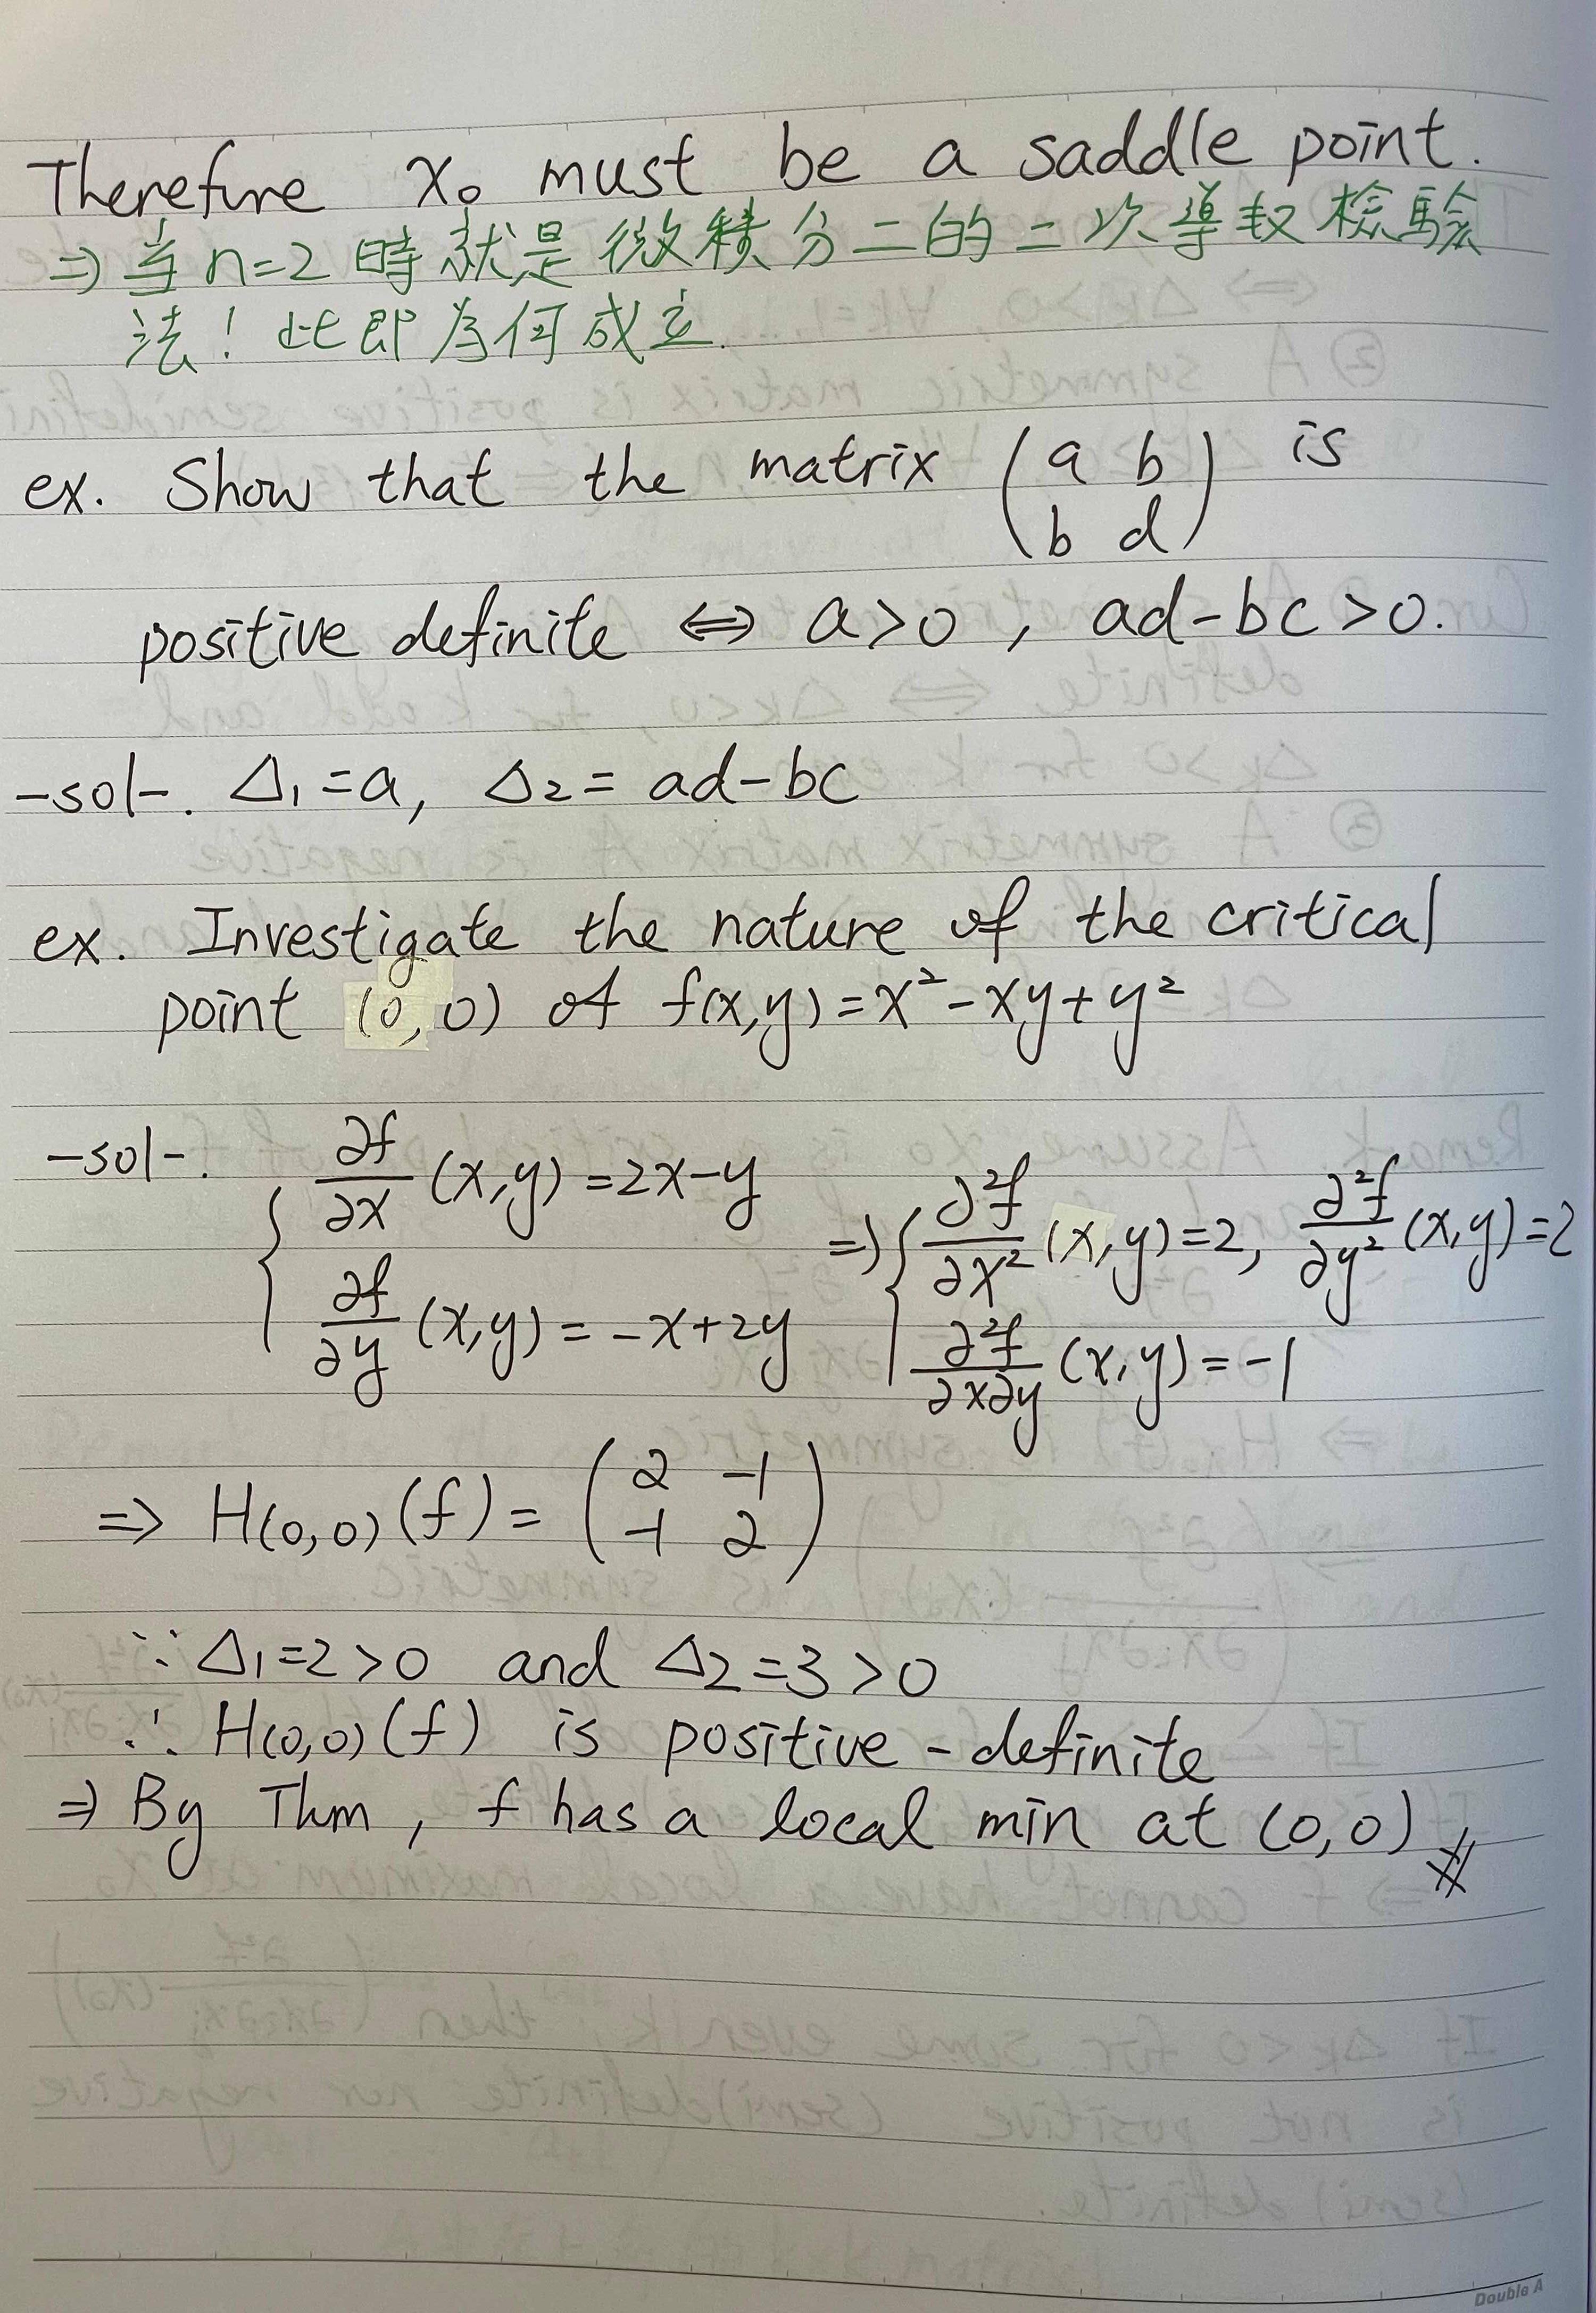 Therefore x₀ must be a saddle point.
⇒ 当 n=2 時就是微積分二的二次導数檢驗
法！此即為何成立.
ex. Show that the matrix (a b
b d) is
positive definite ⇔ a>0, ad-bc>0.
-sol-. Δ₁=a, Δ₂= ad-bc
ex. Investigate the nature of the critical
point (0,0) of f(x,y)=x²-xy+y²
-sol-. { ∂f/∂x (x,y)=2x-y
∂f/∂y (x,y)= -x+2y
⇒ { ∂²f/∂x² (x,y)=2, ∂²f/∂y² (x,y)=2
∂²f/∂x∂y (x,y)=-1
⇒ H(0,0)(f)= (2 -1
-1 2)
∵ Δ₁=2>0 and Δ₂=3>0
∴ H(0,0)(f) is positive-definite
⇒ By Thm, f has a local min at (0,0) #
Double A